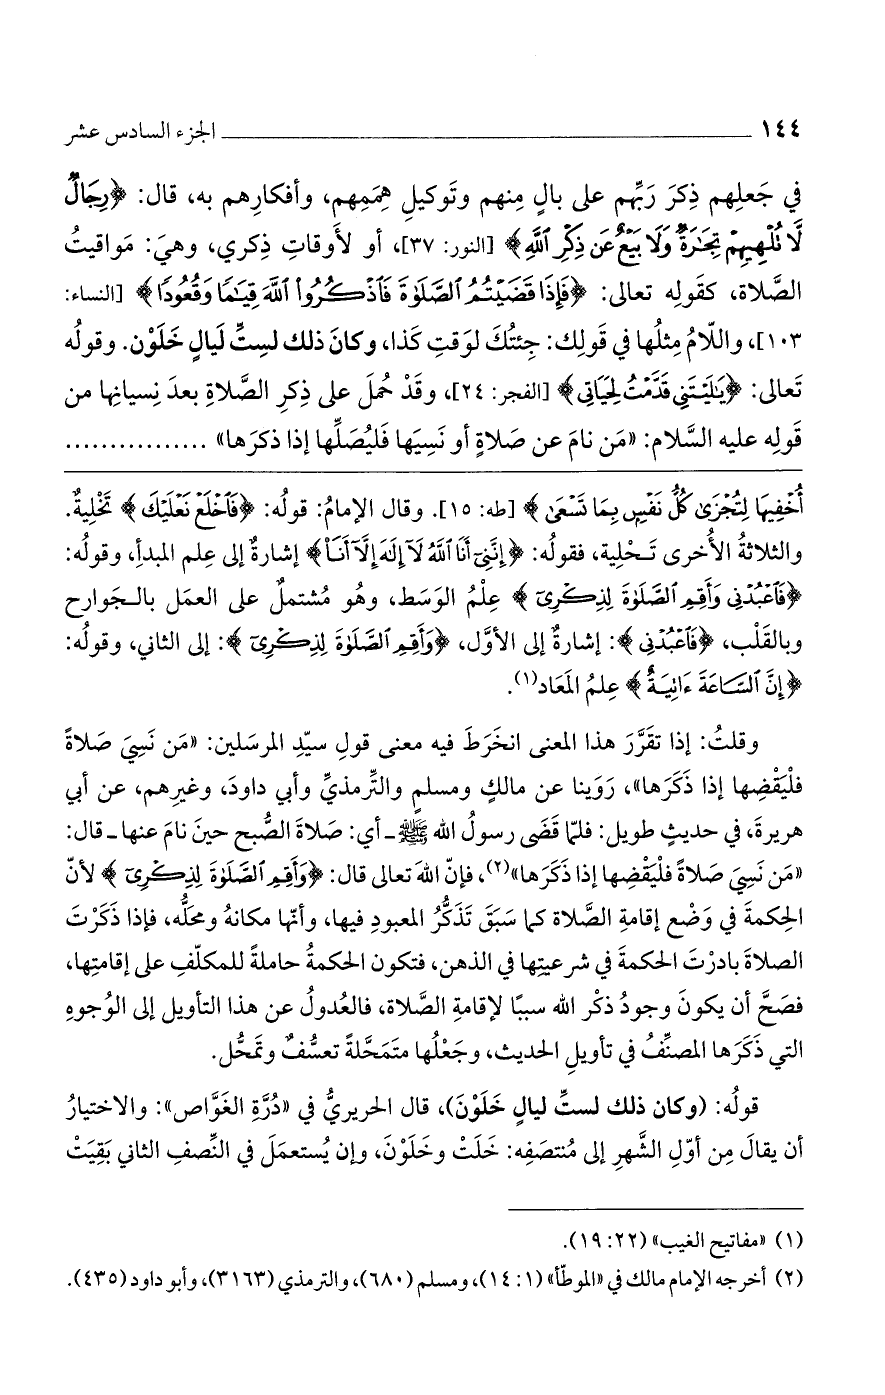 ١٤٤ الجزء السادس عشر
في جَعلِهم ذِكرَ رَبِّهم على بالٍ مِنهم وتَوكيلِ هِمَمِهم، وأفكارِهم به، قال: ﴿رِجَالٌ
لَّا تُلْهِيهِمْ تِجَٰرَةٌ وَلَا بَيْعٌ عَن ذِكْرِ ٱللَّهِ﴾ [النور: ٣٧]، أو لأوقاتِ ذِكري، وهيَ: مَواقيتُ
الصَّلاة، كقَولِه تعالى: ﴿فَإِذَا قَضَيْتُمُ ٱلصَّلَوٰةَ فَٱذْكُرُوا۟ ٱللَّهَ قِيَٰمًا وَقُعُودًا﴾ [النساء:
١٠٣]، واللّامُ مِثلُها في قَولِك: جِئتُكَ لوَقتِ كَذا، وكانَ ذلك لستِّ لَيالٍ خَلَوْن. وقولُه
تَعالى: ﴿يَٰلَيْتَنِى قَدَّمْتُ لِحَيَاتِى﴾ [الفجر: ٢٤]، وقَدْ حُملَ على ذِكرِ الصَّلاةِ بعدَ نِسيانِها من
قَولِه عليه السَّلام: «مَن نامَ عن صَلاةٍ أو نَسِيَها فَليُصَلِّها إذا ذكرَها» ................
أُخْفِيهَا لِتُجْزَىٰ كُلُّ نَفْسٍۭ بِمَا تَسْعَىٰ﴾ [طه: ١٥]. وقال الإمامُ: قولُه: ﴿فَٱخْلَعْ نَعْلَيْكَ﴾ تَخْلِيةٌ.
والثلاثةُ الأُخرى تَـحْلِية، فقولُه: ﴿إِنَّنِىٓ أَنَا ٱللَّهُ لَآ إِلَٰهَ إِلَّآ أَنَا۠﴾ إشارةٌ إلى عِلم المبدأِ، وقولُه:
﴿فَٱعْبُدْنِى وَأَقِمِ ٱلصَّلَوٰةَ لِذِكْرِىٓ﴾ عِلْمُ الوَسَط، وهُو مُشتملٌ على العمَل بالـجَوارح
وبالقَلْب، ﴿فَٱعْبُدْنِى﴾: إشارةٌ إلى الأوَّل، ﴿وَأَقِمِ ٱلصَّلَوٰةَ لِذِكْرِىٓ﴾: إلى الثاني، وقولُه:
﴿إِنَّ ٱلسَّاعَةَ ءَاتِيَةٌ﴾ عِلمُ المَعَاد(١).
وقلتُ: إذا تقرَّرَ هذا المعنى انخَرَطَ فيه معنى قولِ سيّدِ المرسَلين: «مَن نَسِيَ صَلاةً
فلْيَقْضِها إذا ذَكَرَها»، رَوَينا عن مالكٍ ومسلمٍ والتِّرمذيِّ وأبي داودَ، وغيرِهم، عن أبي
هريرةَ، في حديثٍ طويل: فلمّا قَضَى رسولُ الله ﷺ ـ أي: صَلاةَ الصُّبح حينَ نامَ عنها ـ قال:
«مَن نَسِيَ صَلاةً فلْيَقْضِها إذا ذَكَرَها»(٢)، فإنّ اللهَ تعالى قال: ﴿وَأَقِمِ ٱلصَّلَوٰةَ لِذِكْرِىٓ﴾ لأنّ
الحِكمةَ في وَضْع إقامةِ الصَّلاة كما سَبَقَ تَذَكُّرُ المعبودِ فيها، وأنّها مكانهُ ومحَلُّه، فإذا ذَكَرْتَ
الصلاةَ بادرْتَ الحكمةَ في شرعيتِها في الذهن، فتكون الحكمةُ حاملةً للمكلّفِ على إقامتِها،
فصَحَّ أن يكونَ وجودُ ذكْر الله سببًا لإقامةِ الصَّلاة، فالعُدولُ عن هذا التأويل إلى الوُجوهِ
التي ذَكَرَها المصنِّفُ في تأويلِ الحديث، وجَعْلُها متَمَحَّلةً تعسُّفٌ وتَمَحُّل.
قولُه: (وكان ذلك لستِّ ليالٍ خَلَوْنَ)، قال الحريريُّ في «دُرَّةِ الغَوَّاص»: والاختيارُ
أن يقالَ مِن أوّلِ الشَّهرِ إلى مُنتصَفِه: خَلَتْ وخَلَوْنَ، وإن يُستعمَلَ في النِّصفِ الثاني بَقِيَتْ
(١) «مفاتيح الغيب» (٢٢: ١٩).
(٢) أخرجه الإمام مالك في «الموطّأ» (١: ١٤)، ومسلم (٦٨٠)، والترمذي (٣١٦٣)، وأبو داود (٤٣٥).